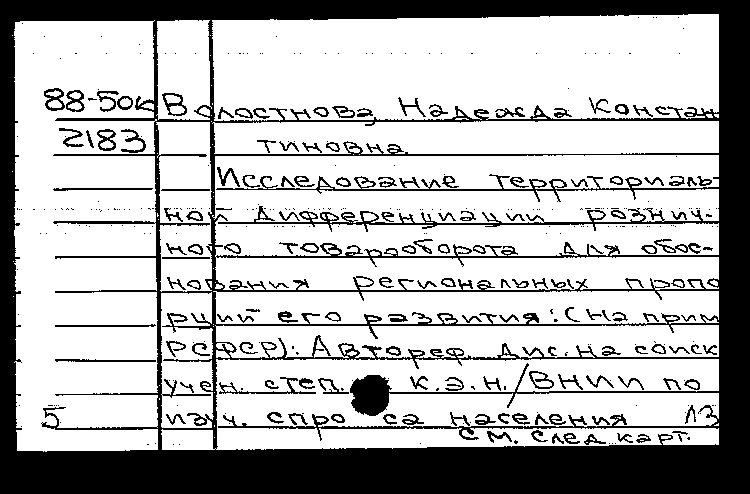 88-50к Волостнова, Надежда Констан
2183 тиновна
Исследование территориаль-
ной дифференциации рознич-
ного товарооборота для обос-
нования региональных пропо
рций его развития: (На прим
РСФСР): Автореф. дис. на соиск
учен. степ. к.э.н./ВНИИ по
5 изуч. спроса населения
см. след карт.